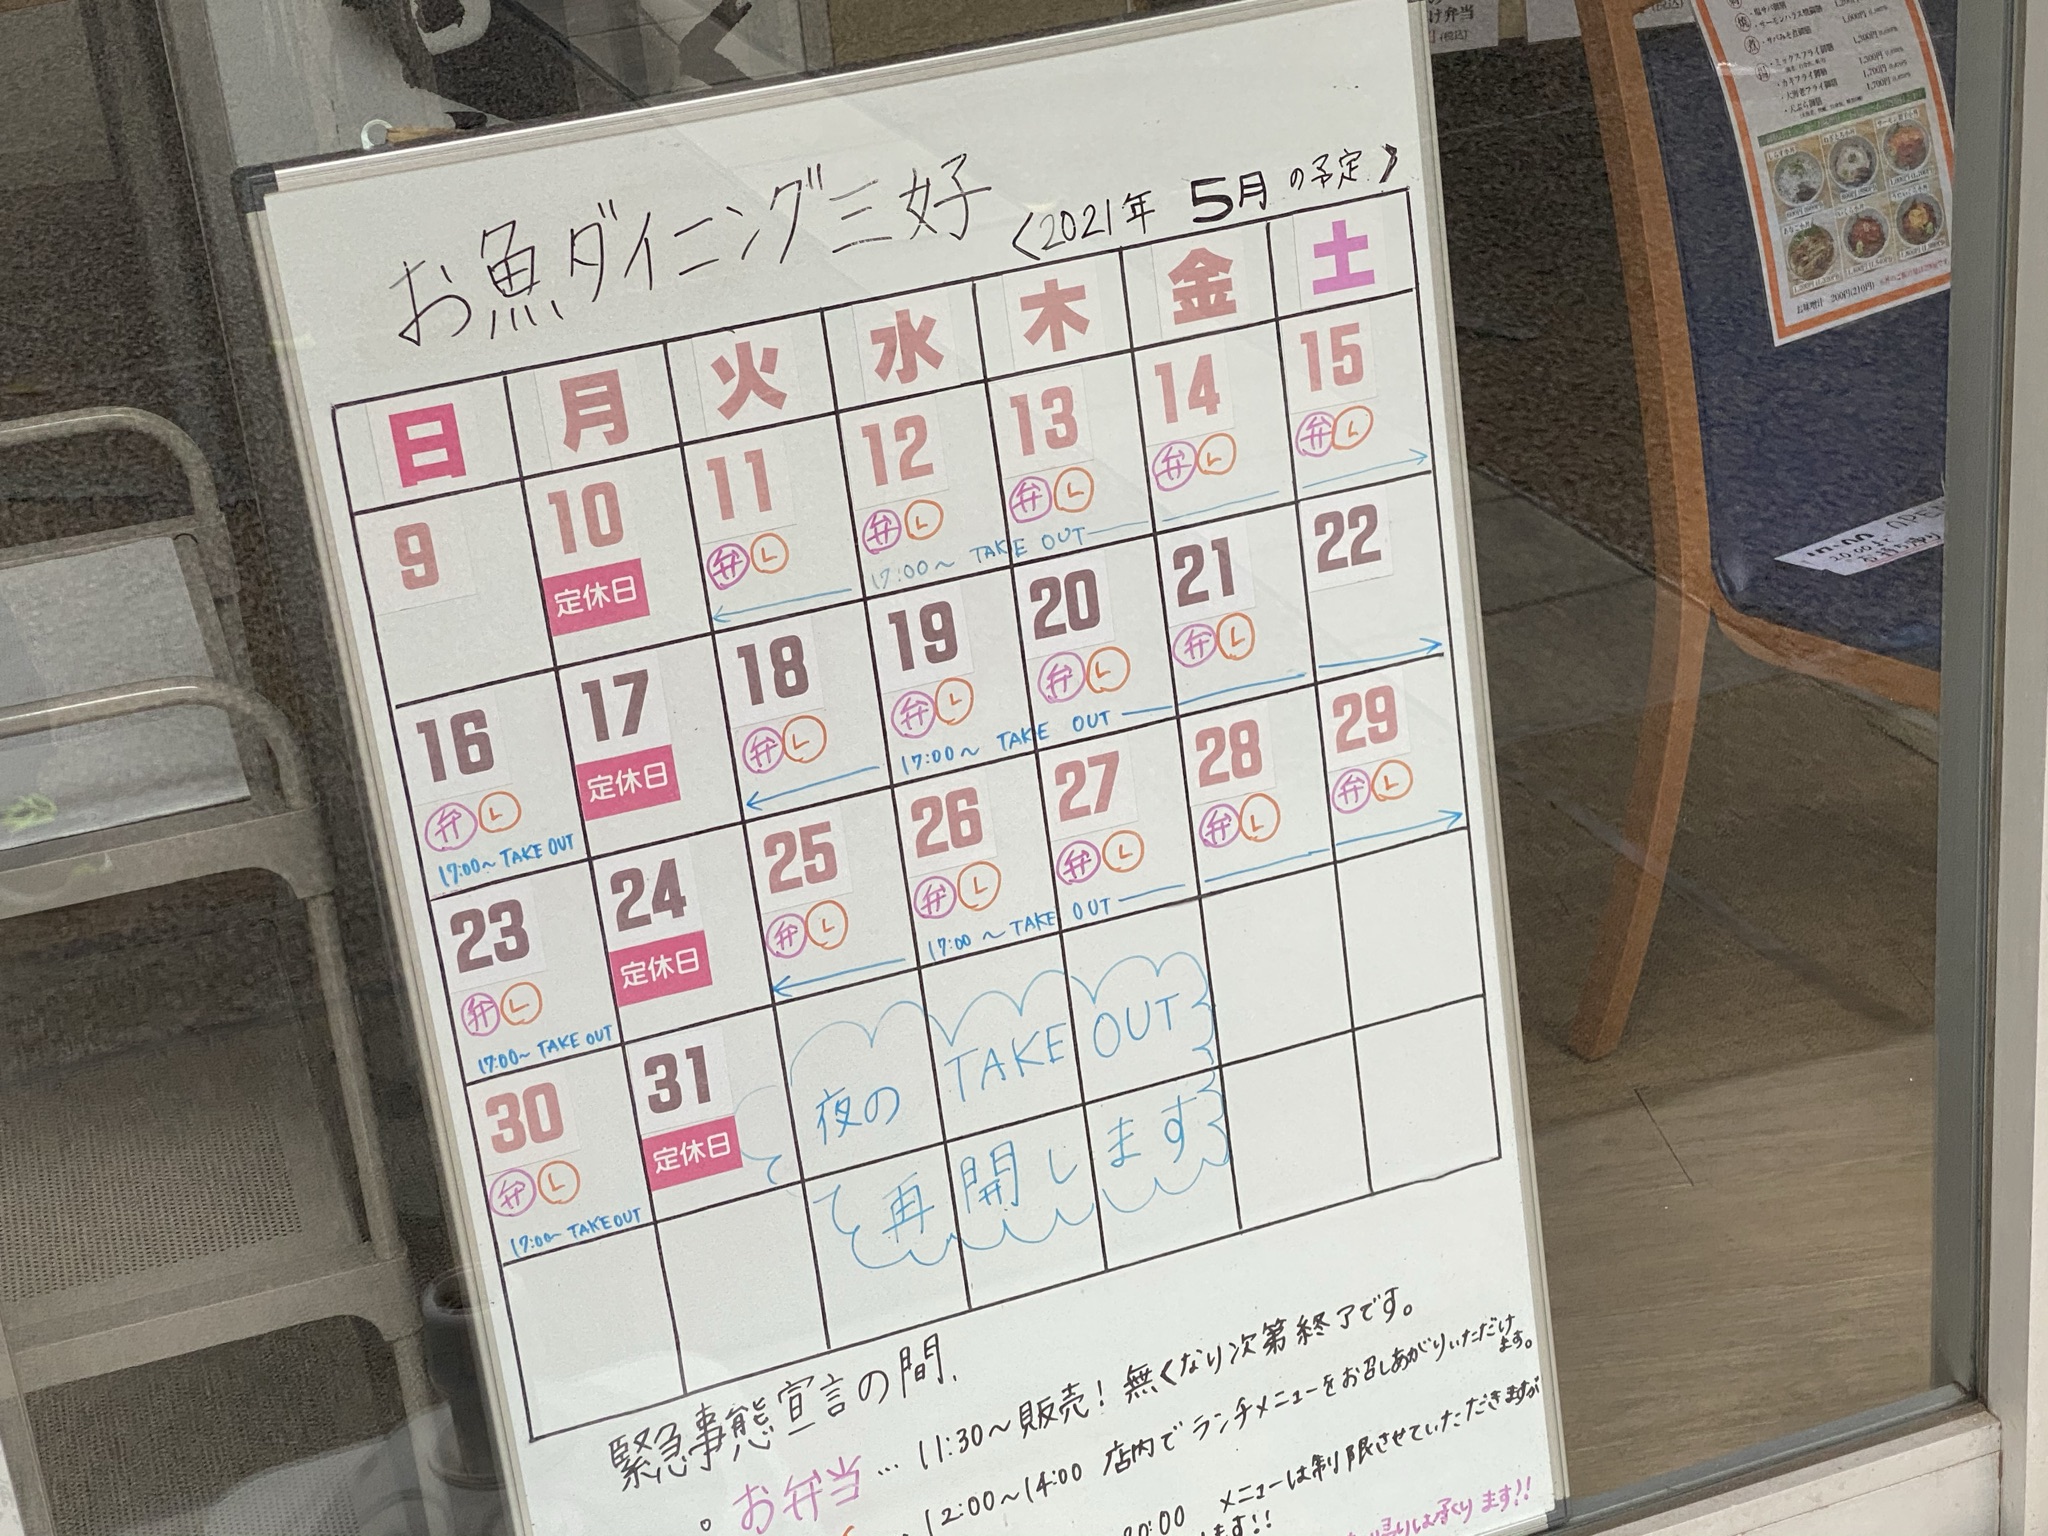 お魚ダイニング三好
〈2021年 5月の予定〉
日 月 火 水 木 金 土
9 10 11 12 13 14 15
定休日 弁 L 弁 L 弁 L 弁 L 弁 L
17:00～ TAKE OUT
16 17 18 19 20 21 22
弁 L 定休日 弁 L 弁 L 弁 L 弁 L
17:00～ TAKE OUT 17:00～ TAKE OUT
23 24 25 26 27 28 29
弁 L 定休日 弁 L 弁 L 弁 L 弁 L 弁 L
17:00～ TAKE OUT 17:00～ TAKE OUT
30 31
弁 L 定休日
17:00～ TAKE OUT
夜の TAKE OUT
て再開します
緊急事態宣言の間、
。お弁当…11:30～販売！無くなり次第終了です。
12:00～14:00 店内でランチメニューをお召しあがりいただけ
ます。
20:00 メニューは制限させていただきますが
ます!!
りは承ります!!
け弁当
(税込)
・ミックスフライ御膳
・カキフライ御膳
・大海老フライ御膳
・天ぷら御膳
お味噌汁 200円(210円)
OPEN
20:00まで